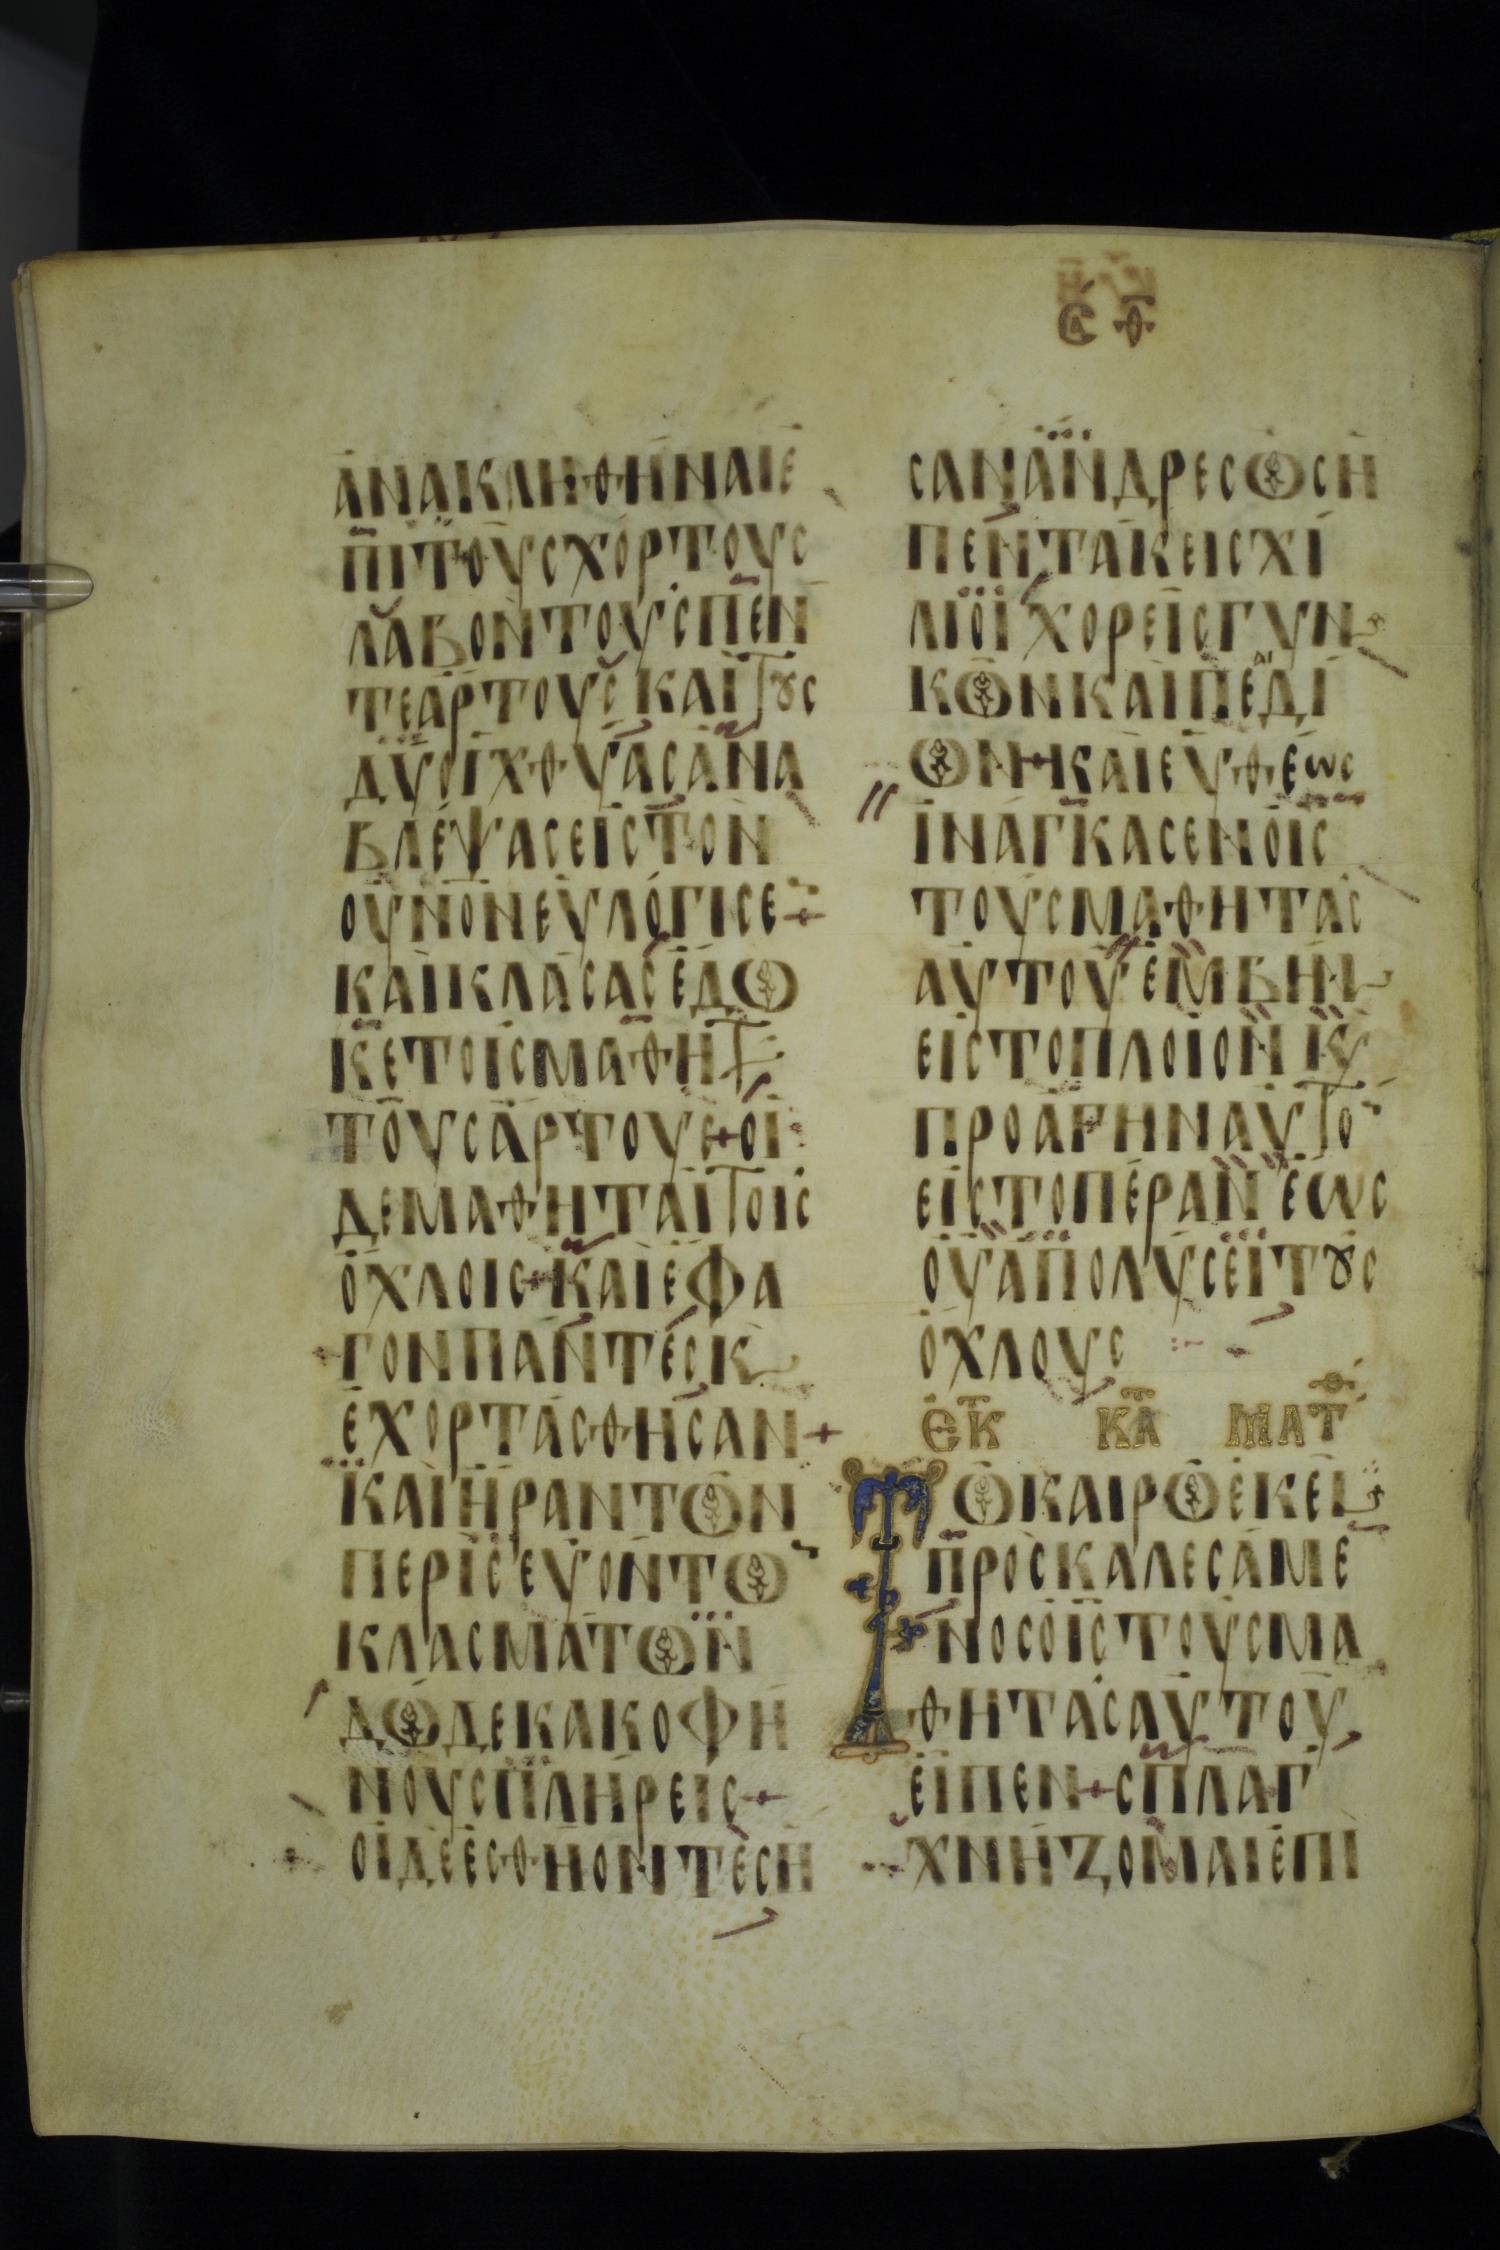 ΑΝΑΚΛΗΘΗΝΑΙΕ
ΠΙΤΟΥΣΧΟΡΤΟΥΣ
ΛΑΒΟΝΤΟΥΣΠΕΝ
ΤΕΑΡΤΟΥΣΚΑΙΤȣΣ
ΔΥΟΙΧΘΥΑΣΑΝΑ
ΒΛΕΨΑΣΕΙΣΤΟΝ
ΟΥΝΟΝΕΥΛΟΓΙΣΕ+
ΚΑΙΚΛΑΣΑΣΕΔΩ
ΚΕΤΟΙΣΜΑΘΗΤ
ΤΟΥΣΑΡΤΟΥΣ+ΟΙ
ΔΕΜΑΘΗΤΑΙΤΟΙΣ
ΟΧΛΟΙΣ+ΚΑΙΕΦΑ
ΓΟΝΠΑΝΤΕΣΚ
ΕΧΟΡΤΑΣΘΗΣΑΝ+
ΚΑΙΗΡΑΝΤΩΝ
ΠΕΡΙΣΕΥΟΝΤΩ
ΚΛΑΣΜΑΤΩΝ
ΔΩΔΕΚΑΚΟΦΗ
ΝΟΥΣΠΛΗΡΕΙΣ+
ΟΙΔΕΕΣΘΗΟΝΤΕΣΗ
ΣΑΝΑΝΔΡΕΣΩΣΗ
ΠΕΝΤΑΚΕΙΣΧΙ
ΛΙΟΙΧΟΡΕΙΣΓΥΝ
ΚΩΝΚΑΙΠΕΔΙ
ΩΝ+ΚΑΙΕΥΘΕΩΣ
ΙΝΑΓΚΑΣΕΝΟΙΣ
ΤΟΥΣΜΑΘΗΤΑΣ
ΑΥΤΟΥΕΜΒΗΝ
ΕΙΣΤΟΠΛΟΙΟΝΚ
ΠΡΟΑΓΗΝΑΥΤΟ
ΕΙΣΤΟΠΕΡΑΝΕΩΣ
ΟΥΑΠΟΛΥΣΕΙΤȣΣ
ΟΧΛΟΥΣ
ΕΚ ΚΑ ΜΑΤΘ
ΤΩΚΑΙΡΩΕΚΕΙ
ΠΡΟΣΚΑΛΕΣΑΜΕ
ΝΟΣΟΙΣΤΟΥΣΜΑ
ΘΗΤΑΣΑΥΤΟΥ
ΕΙΠΕΝ+ΣΠΛΑΓ
ΧΝΗΖΟΜΑΙΕΠΙ